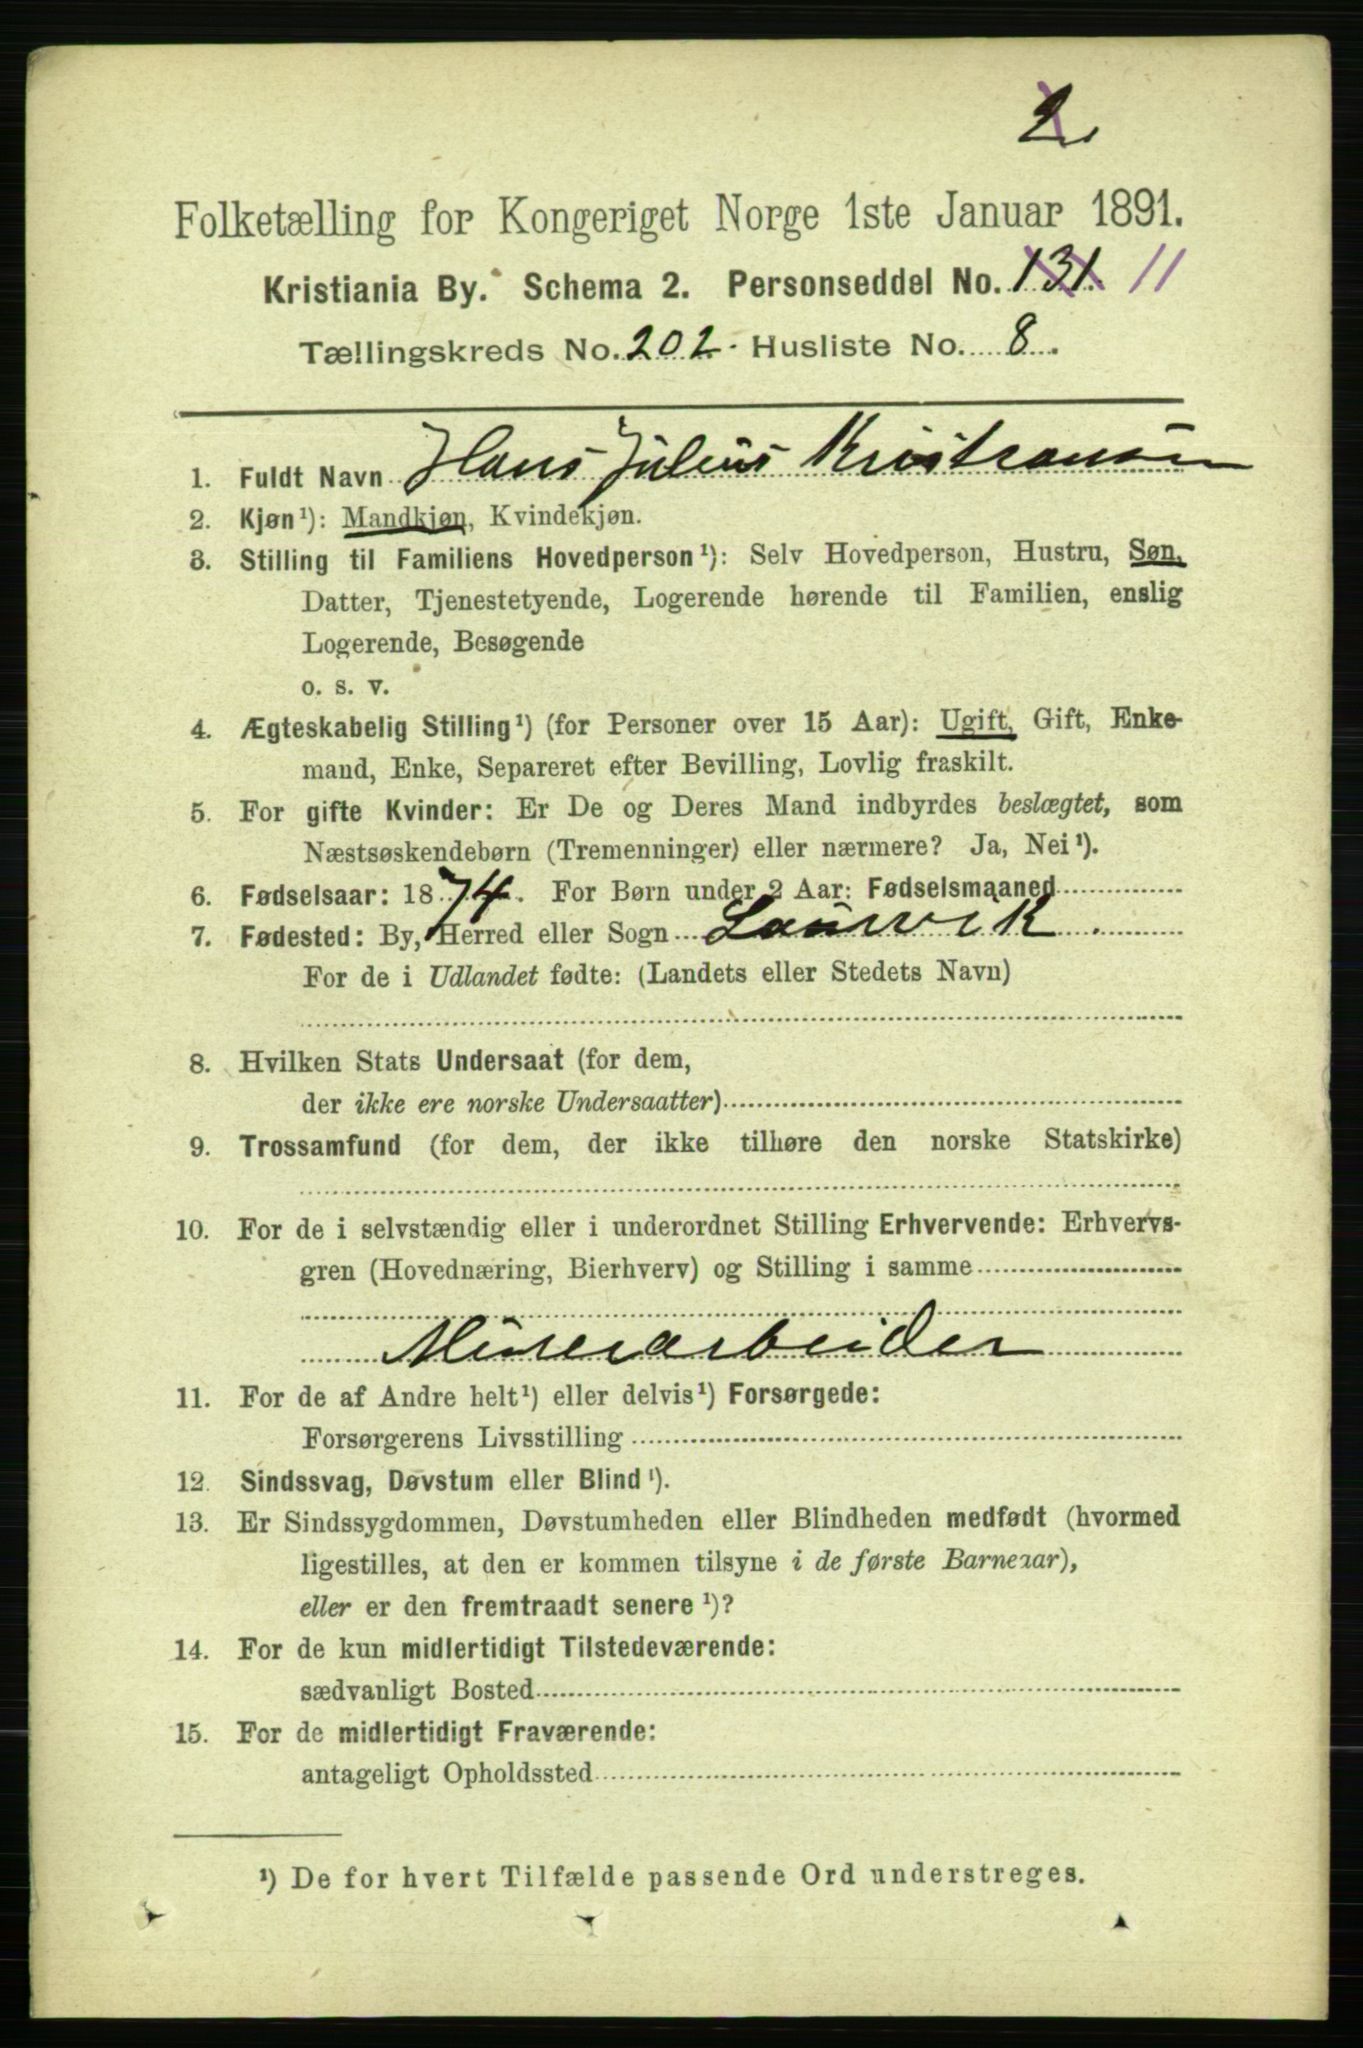 2
Folketælling for Kongeriget Norge 1ste Januar 1891.
Kristiania By. Schema 2. Personseddel No. 131 11
Tællingskreds No. 202. Husliste No. 8.
1. Fuldt Navn Hans Julius Kristiansen
2. Kjøn¹): Mandkjøn, Kvindekjøn.
3. Stilling til Familiens Hovedperson¹): Selv Hovedperson, Hustru, Søn,
Datter, Tjenestetyende, Logerende hørende til Familien, enslig
Logerende, Besøgende
o. s. v.
4. Ægteskabelig Stilling¹) (for Personer over 15 Aar): Ugift, Gift, Enke-
mand, Enke, Separeret efter Bevilling, Lovlig fraskilt.
5. For gifte Kvinder: Er De og Deres Mand indbyrdes beslægtet, som
Næstsøskendebørn (Tremenninger) eller nærmere? Ja, Nei¹).
6. Fødselsaar: 1874. For Børn under 2 Aar: Fødselsmaaned
7. Fødested: By, Herred eller Sogn Laurvik.
For de i Udlandet fødte: (Landets eller Stedets Navn)
8. Hvilken Stats Undersaat (for dem,
der ikke ere norske Undersaatter)
9. Trossamfund (for dem, der ikke tilhøre den norske Statskirke)
10. For de i selvstændig eller i underordnet Stilling Erhvervende: Erhvervs-
gren (Hovednæring, Bierhverv) og Stilling i samme
Murerarbeider
11. For de af Andre helt¹) eller delvis¹) Forsørgede:
Forsørgerens Livsstilling
12. Sindssvag, Døvstum eller Blind¹).
13. Er Sindssygdommen, Døvstumheden eller Blindheden medfødt (hvormed
ligestilles, at den er kommen tilsyne i de første Barneaar),
eller er den fremtraadt senere¹)?
14. For de kun midlertidigt Tilstedeværende:
sædvanligt Bosted
15. For de midlertidigt Fraværende:
antageligt Opholdssted
¹) De for hvert Tilfælde passende Ord understreges.